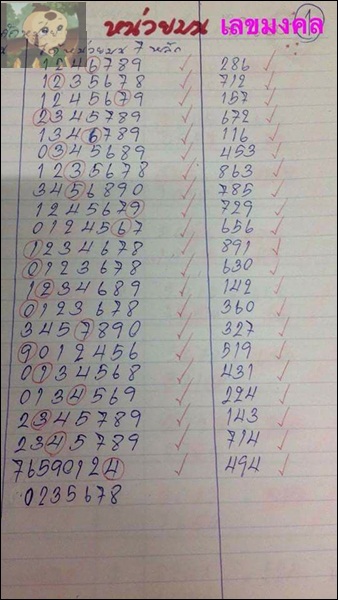 หน่วยบน เลขมงคล 1
หน่วยบน 7 หลัก
1246789 286
1235678 712
1245679 157
2345789 672
1346789 116
0345689 453
1235678 863
3456890 785
1245679 729
0124567 656
1234678 891
0123678 630
1234689 142
0123678 360
3457890 327
9012456 519
0134568 431
0134569 224
2345789 143
2345789 714
76590124 494
0235678